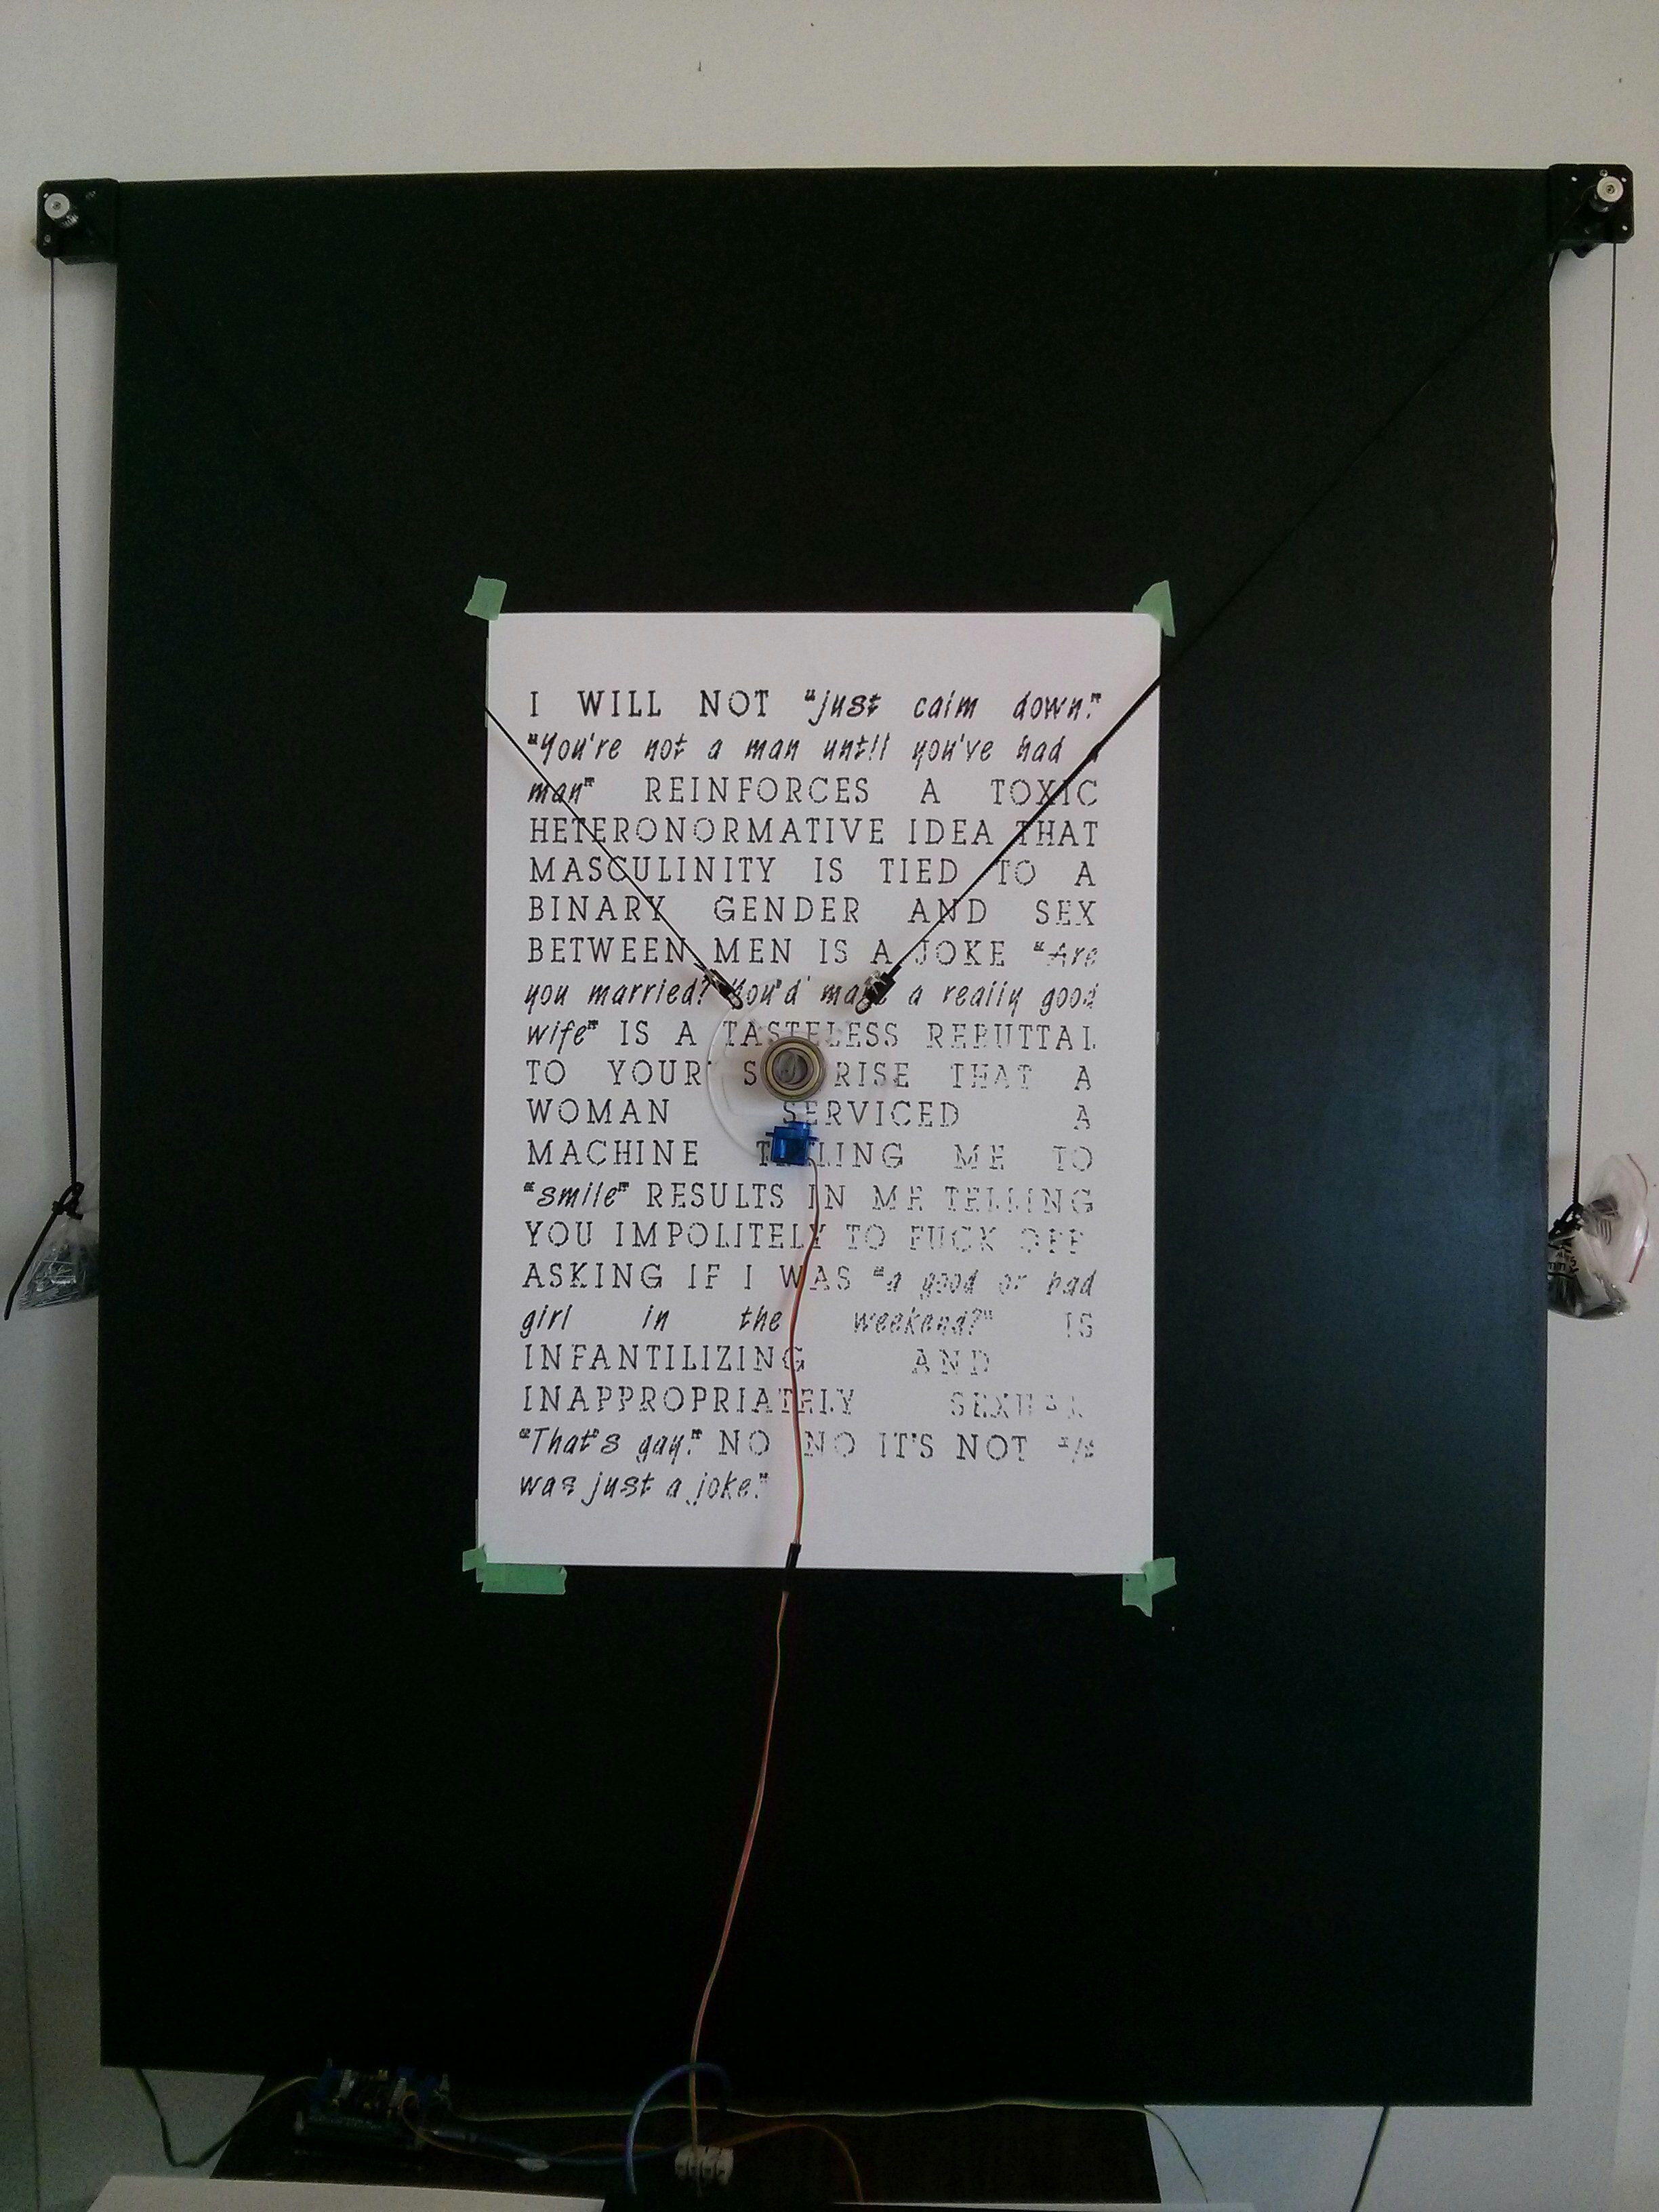 I WILL NOT "just calm down."
"You're not a man until you've had a
man" REINFORCES A TOXIC
HETERONORMATIVE IDEA THAT
MASCULINITY IS TIED TO A
BINARY GENDER AND SEX
BETWEEN MEN IS A JOKE "Are
you married? You'd make a really good
wife" IS A TASTELESS REBUTTAL
TO YOUR RISE THAT A
WOMAN SERVICED A
MACHINE TELLING ME TO
"smile" RESULTS IN ME TELLING
YOU IMPOLITELY TO FUCK OFF
ASKING IF I WAS "a good or bad
girl in the weekend?" IS
INFANTILIZING AND
INAPPROPRIATELY SEXUAL
"That's gay." NO NO IT'S NOT "It
was just a joke."